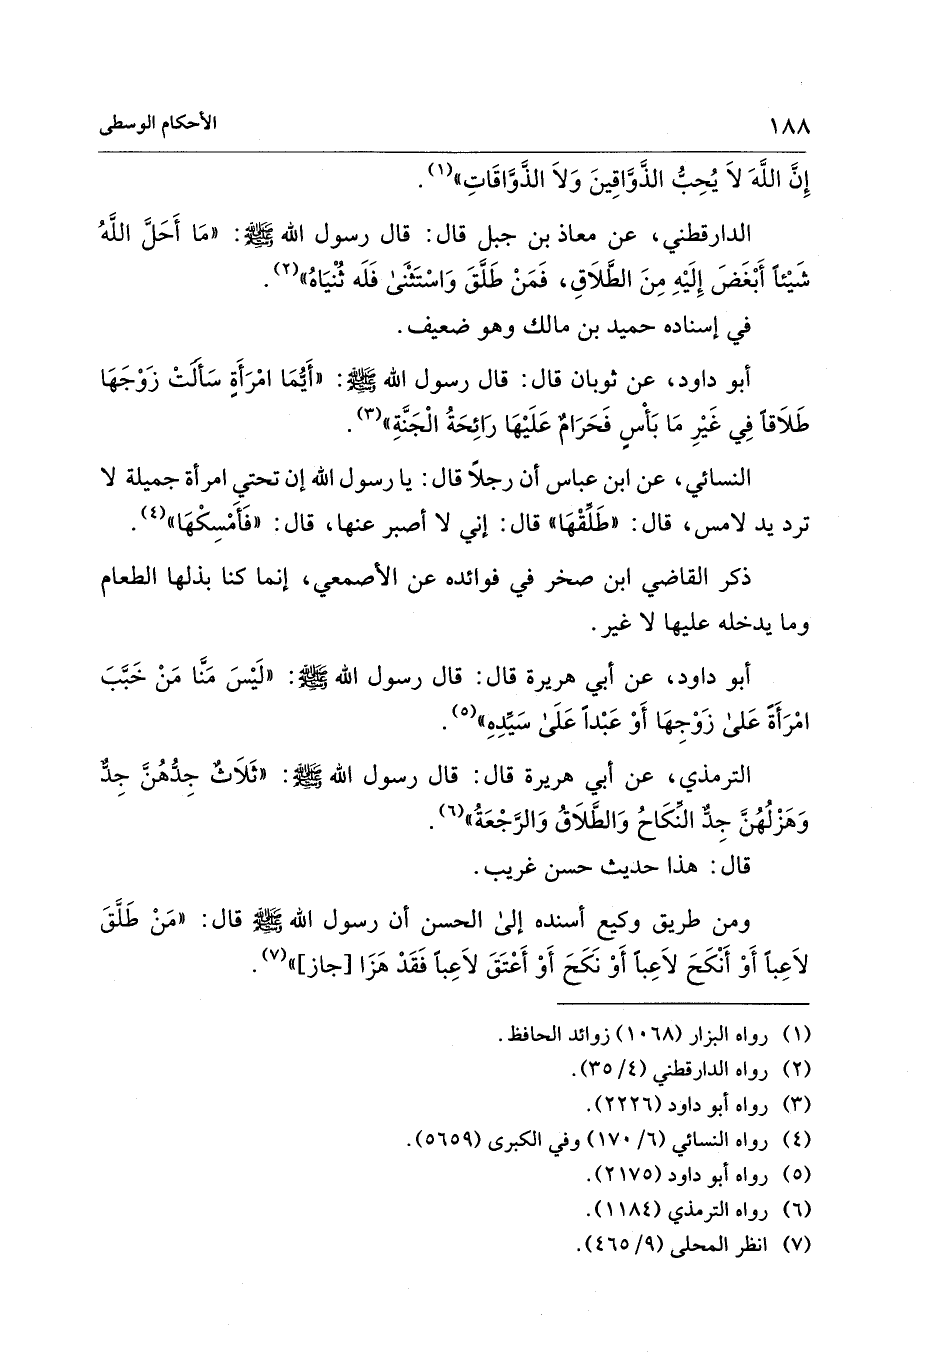 ١٨٨ الأحكام الوسطى
إِنَّ اللَّهَ لاَ يُحِبُّ الذَّوَّاقِينَ وَلاَ الذَّوَّاقَاتِ»(١).
الدارقطني، عن معاذ بن جبل قال: قال رسول الله ﷺ: «مَا أَحَلَّ اللَّهُ
شَيْئاً أَبْغَضَ إِلَيْهِ مِنَ الطَّلَاقِ، فَمَنْ طَلَّقَ وَاسْتَثْنىٰ فَلَه ثُنْيَاهُ»(٢).
في إسناده حميد بن مالك وهو ضعيف.
أبو داود، عن ثوبان قال: قال رسول الله ﷺ: «أَيُّمَا امْرَأَةٍ سَأَلَتْ زَوْجَهَا
طَلَاقاً فِي غَيْرِ مَا بَأْسٍ فَحَرَامٌ عَلَيْهَا رَائِحَةُ الْجَنَّةِ»(٣).
النسائي، عن ابن عباس أن رجلاً قال: يا رسول الله إن تحتي امرأة جميلة لا
ترد يد لامس، قال: «طَلِّقْهَا» قال: إني لا أصبر عنها، قال: «فَأَمْسِكْهَا»(٤).
ذكر القاضي ابن صخر في فوائده عن الأصمعي، إنما كنا بذلها الطعام
وما يدخله عليها لا غير.
أبو داود، عن أبي هريرة قال: قال رسول الله ﷺ: «لَيْسَ مَنَّا مَنْ خَبَّبَ
امْرَأَةً عَلىٰ زَوْجِهَا أَوْ عَبْداً عَلَىٰ سَيِّدِهِ»(٥).
الترمذي، عن أبي هريرة قال: قال رسول الله ﷺ: «ثَلَاثٌ جِدُّهُنَّ جِدٌّ
وَهَزْلُهُنَّ جِدٌّ النِّكَاحُ وَالطَّلَاقُ وَالرَّجْعَةُ»(٦).
قال: هذا حديث حسن غريب.
ومن طريق وكيع أسنده إلىٰ الحسن أن رسول الله ﷺ قال: «مَنْ طَلَّقَ
لاَعِباً أَوْ أَنْكَحَ لاَعِباً أَوْ نَكَحَ أَوْ أَعْتَقَ لاَعِباً فَقَدْ هَزَا [جاز]»(٧).
(١) رواه البزار (١٠٦٨) زوائد الحافظ.
(٢) رواه الدارقطني (٤/ ٣٥).
(٣) رواه أبو داود (٢٢٢٦).
(٤) رواه النسائي (٦/ ١٧٠) وفي الكبرى (٥٦٥٩).
(٥) رواه أبو داود (٢١٧٥).
(٦) رواه الترمذي (١١٨٤).
(٧) انظر المحلى (٩/ ٤٦٥).